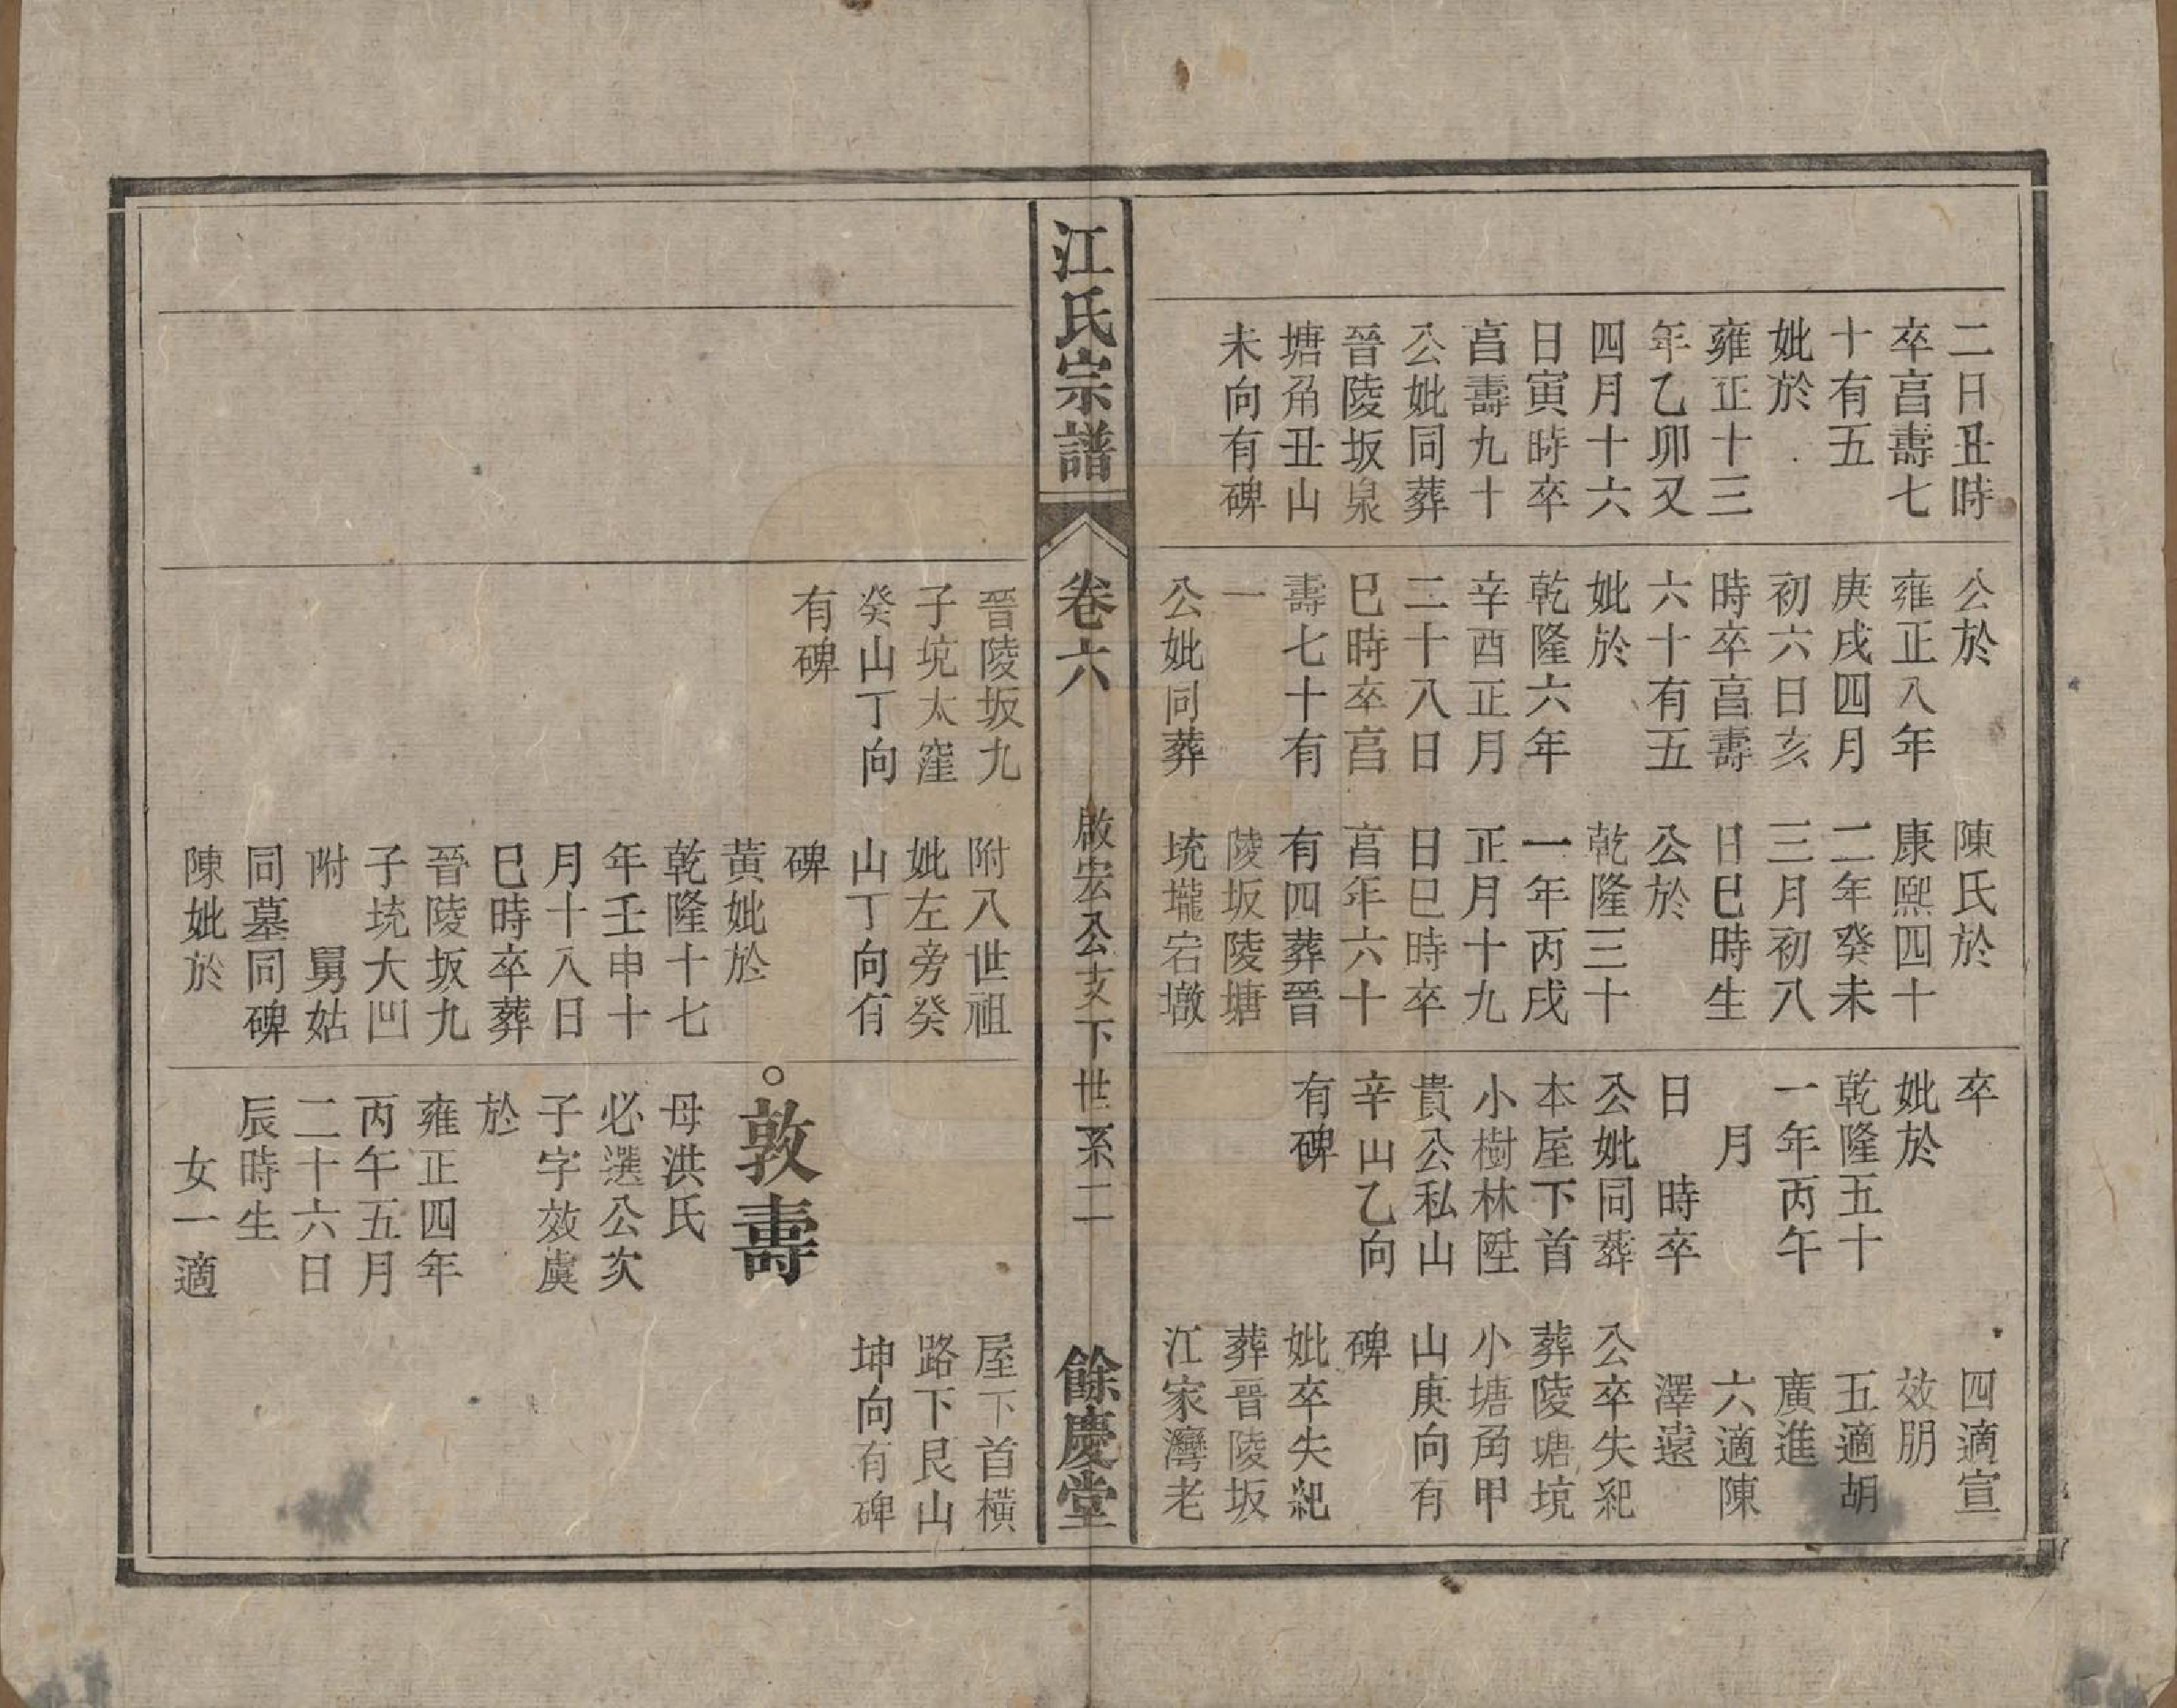 二日丑時
卒亯壽七
十有五
妣於
雍正十三
年乙卯又
四月十六
日寅時卒
亯壽九十
公妣同葬
晉陵坂泉
塘角丑山
未向有碑
公於
雍正八年
庚戌四月
初六日亥
時卒亯壽
六十有五
妣於
乾隆六年
辛酉正月
二十八日
巳時卒亯
壽七十有
一
公妣同葬
陳氏於
康熙四十
二年癸未
三月初八
日巳時生
公於
乾隆三十
一年丙戌
正月十九
日巳時卒
亯年六十
有四葬晉
陵坂陵塘
垅壠宕墩
卒
妣於
乾隆五十
一年丙午
月
日　時卒
公妣同葬
本屋下首
小樹林陞
貴公私山
辛山乙向
有碑
四適宣
效朋
五適胡
廣進
六適陳
澤遠
公卒失紀
葬陵塘坑
小塘角甲
山庚向有
碑
妣卒失紀
葬晉陵坂
江家灣老
江氏宗譜
卷六
啟宏公支下世系二
餘慶堂
晉陵坂九
子坑太窪
癸山丁向
有碑
附八世祖
妣左旁癸
山丁向有
碑
黄妣於
乾隆十七
年壬申十
月十八日
巳時卒葬
晉陵坂九
子垅大凹
附　舅姑
同墓同碑
陳妣於
。敦壽
母洪氏
必選公次
子字效虞
於
雍正四年
丙午五月
二十六日
辰時生
女一適
屋下首橫
路下艮山
坤向有碑